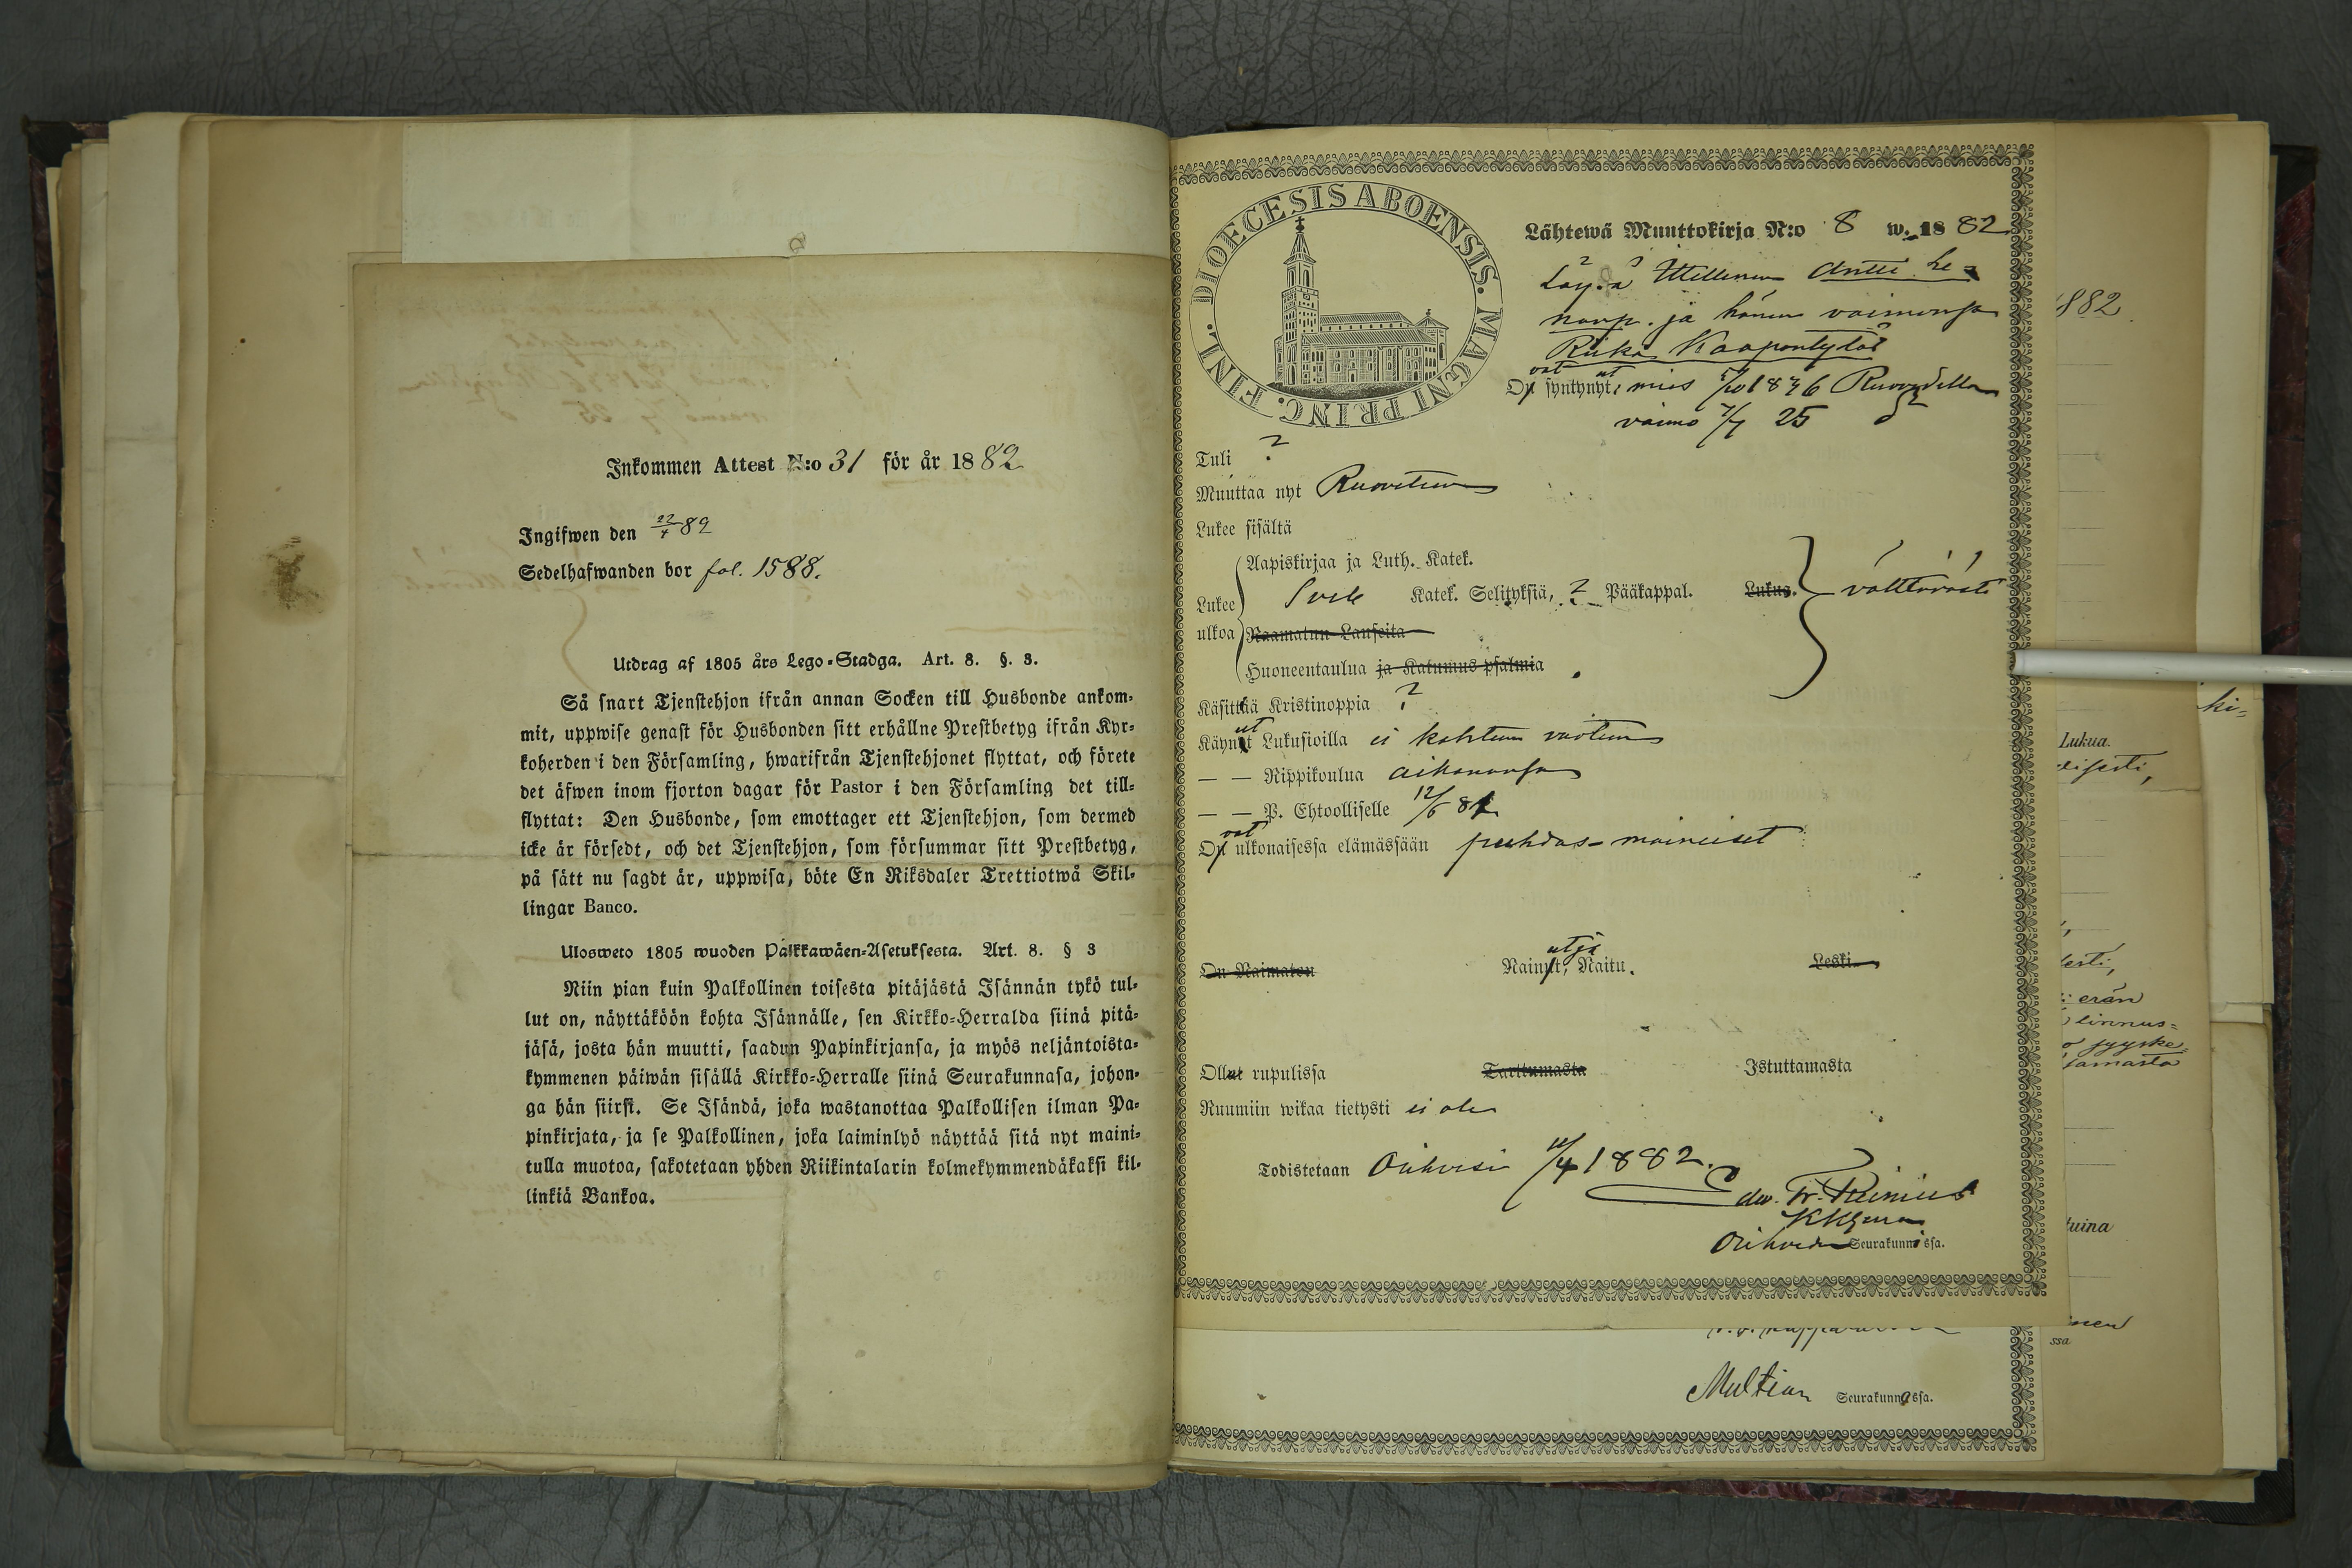 Inkommen Attest N:o 31 för år 1882
Ingifwen den 22/4 82
Sedelhafwanden bor fol. 1588.
Utdrag af 1805 års Lego-Stadga. Art. 8. §. 3.
Så snart Tjenstehjon ifrån annan Socken till Husbonde ankom-
mit, uppwise genast för Husbonden sitt erhållne Prestbetyg ifrån Kyr-
koherden i den Församling, hwarifrån Tjenstehjonet flyttat, och förete
det äfwen inom fjorton dagar för Pastor i den Församling det till-
flyttat: Den Husbonde, som emottager ett Tjenstehjon, som dermed
icke är försedt, och det Tjenstehjon, som försummar sitt Prestbetyg,
på sätt nu sagdt är, uppwisa, böte En Riksdaler Trettiotwå Skil-
lingar Banco.
Ulosweto 1805 wuoden Palkkawäen-Asetuksesta. Art. 8. § 3
Niin pian kuin Palkollinen toisesta pitäjästä Isännän tykö tul-
lut on, näyttäköön kohta Isännälle, sen Kirkko-Herralda siinä pitä-
jäsä, josta hän muutti, saadun Papinkirjansa, ja myös neljäntoista-
kymmenen päiwän sisällä Kirkko-Herralle siinä Seurakunnasa, johon-
ga hän siirsi. Se Isändä, joka wastanottaa Palkollisen ilman Pa-
pinkirjata, ja se Palkollinen, joka laiminlyö näyttää sitä nyt maini-
tulla muotoa, sakotetaan yhden Riikintalarin kolmekymmendäkaksi kil-
linkiä Bankoa.
DIOECESIS ABOENSIS. MAGNI PRINC. FINL.
Lähtewä Muuttokirja N:o 8 w. 1882
Antti
ja hänen vaimonsa
Kaapontytär
syntynyt: mies 1836 Ruovedellä
vaimo 7/7 25
Tuli ?
Muuttaa nyt Ruoveteen
Lukee sisältä
Aapiskirjaa ja Luth. Katek.
Lukee Svebi Katek. Selityksiä, ? Pääkappal. Lukus. välttävästi
ulkoa Raamatun Lauseita
Huoneentaulua ja Katumus psalmia
Käsittää Kristinoppia ?
Käynyt Lukusioilla ei kahteen vuoteen
— — Rippikoulua aikanansa
— — P. Ehtoolliselle 12/6 81
ovat
On ulkonaisessa elämässään puhdas-maineiset
On Naimaton Nainut, Naitu. Leski
Ollut rupulissa Tarttumasta Istuttamasta
Ruumiin wikaa tietysti ei ole
Todistetaan Orihvesi 1882.
Fr. Reinius
Orihveden Seurakunnissa.
Multian Seurakunnassa.
1882
Lukua.
erän
linnus-